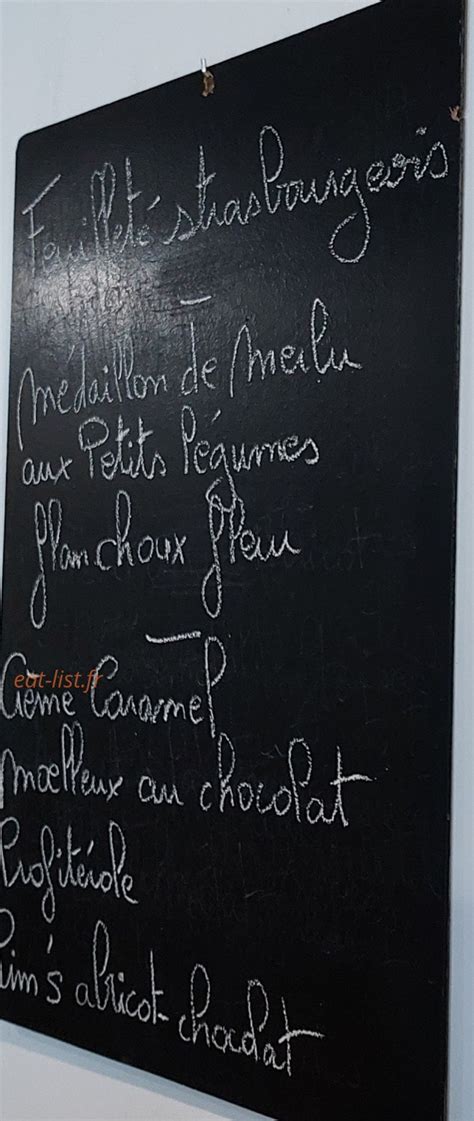 Feuilleté strasbourgeois
médaillon de merlu
aux Petits légumes
flan choux fleur
eat-list.fr
Crème Caramel
moelleux au chocolat
Profiterole
Pim's abricot-chocolat